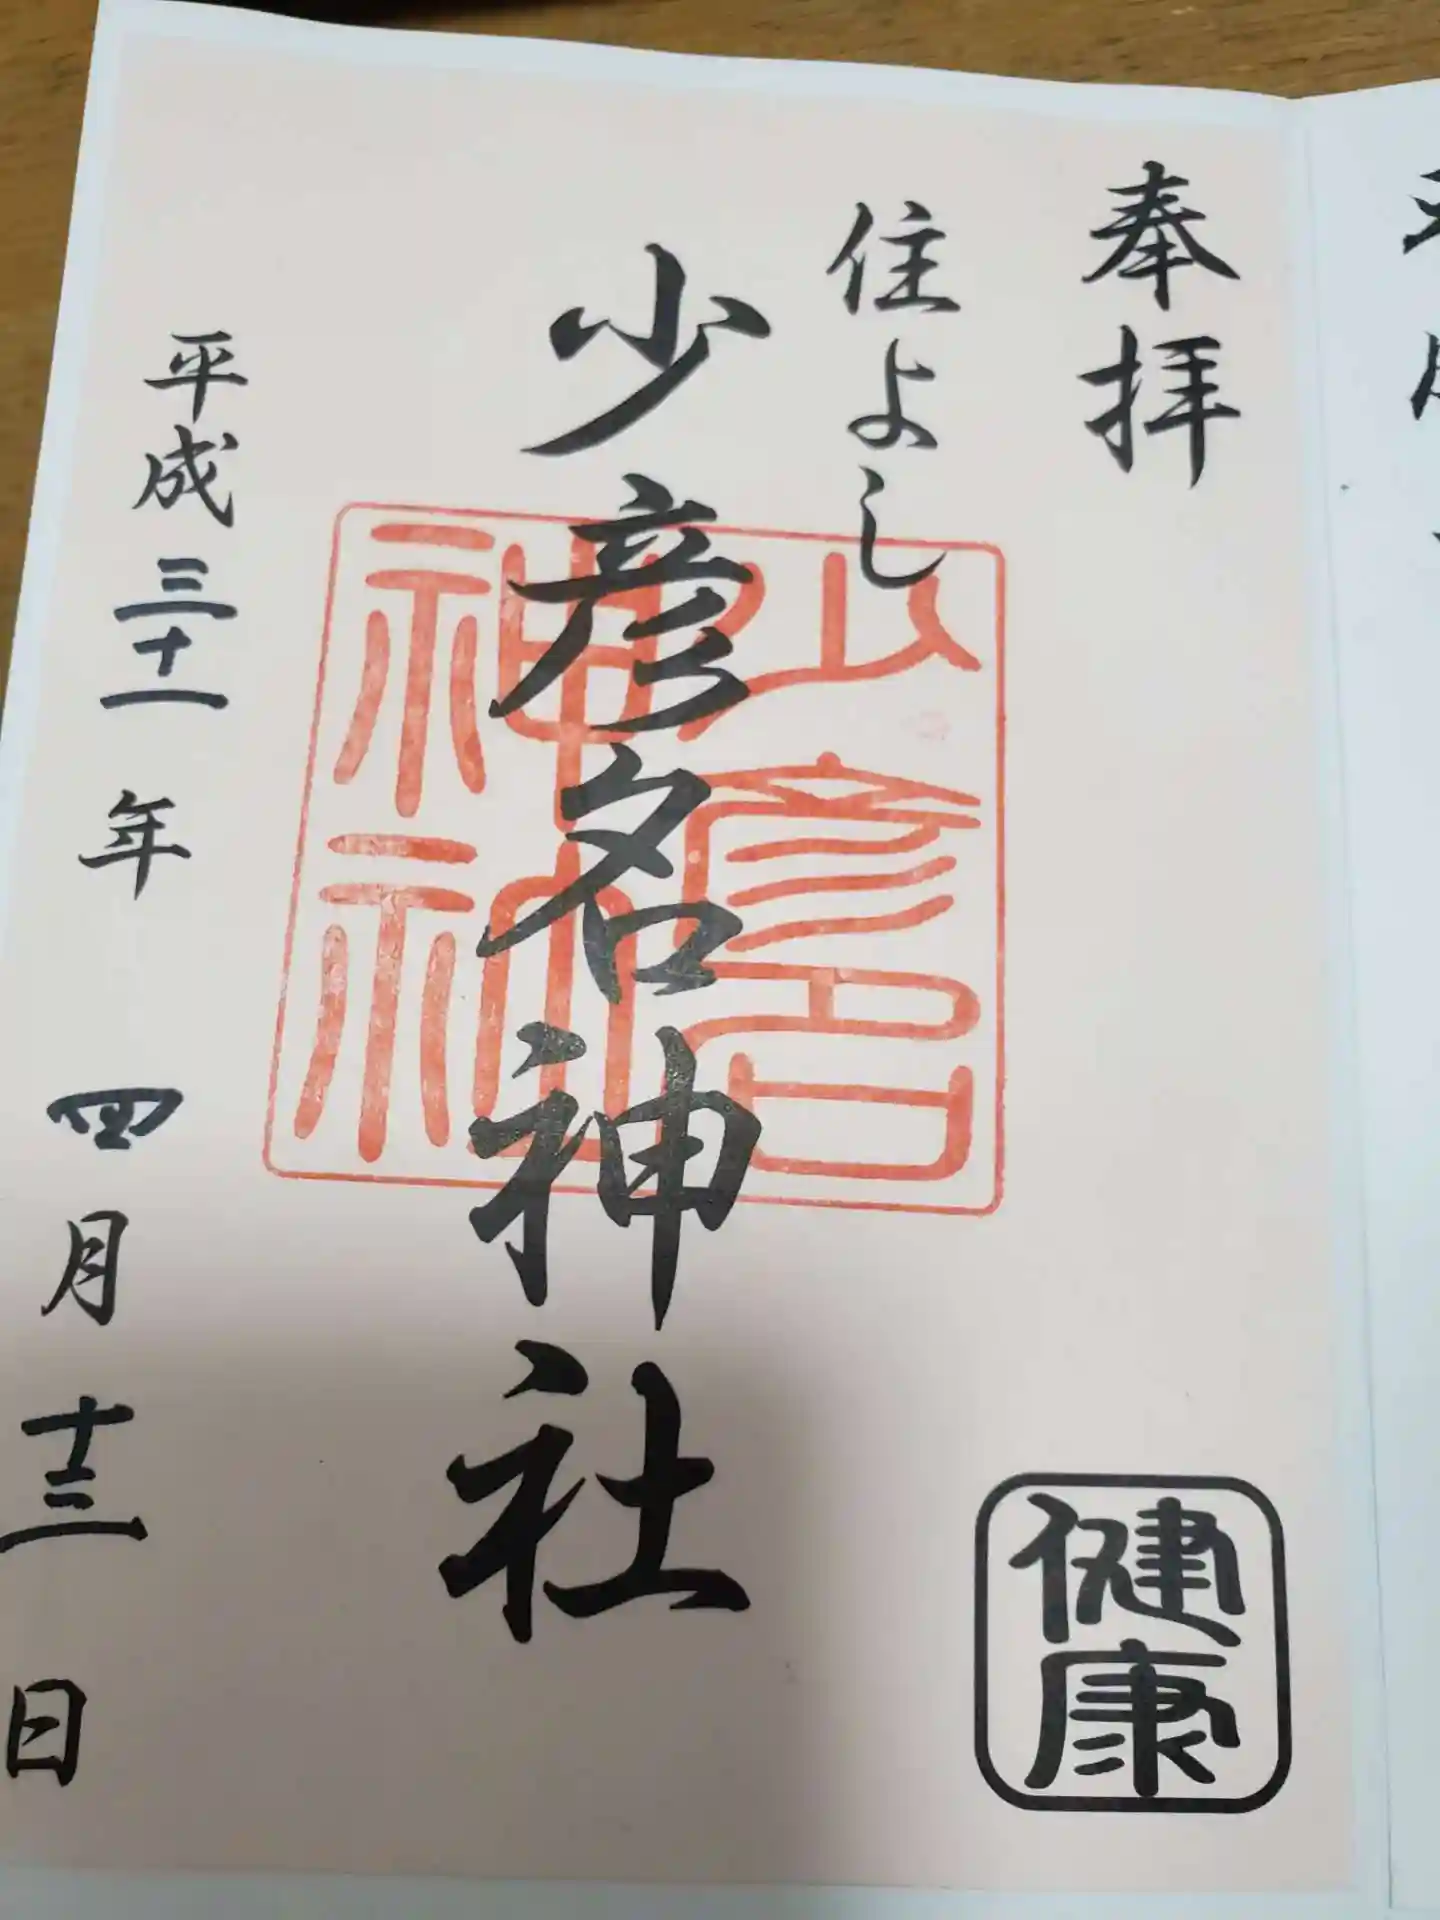 奉拝
住よし
少彦名神社
少彦名
神社
平成三十一年 四月十三日
健康